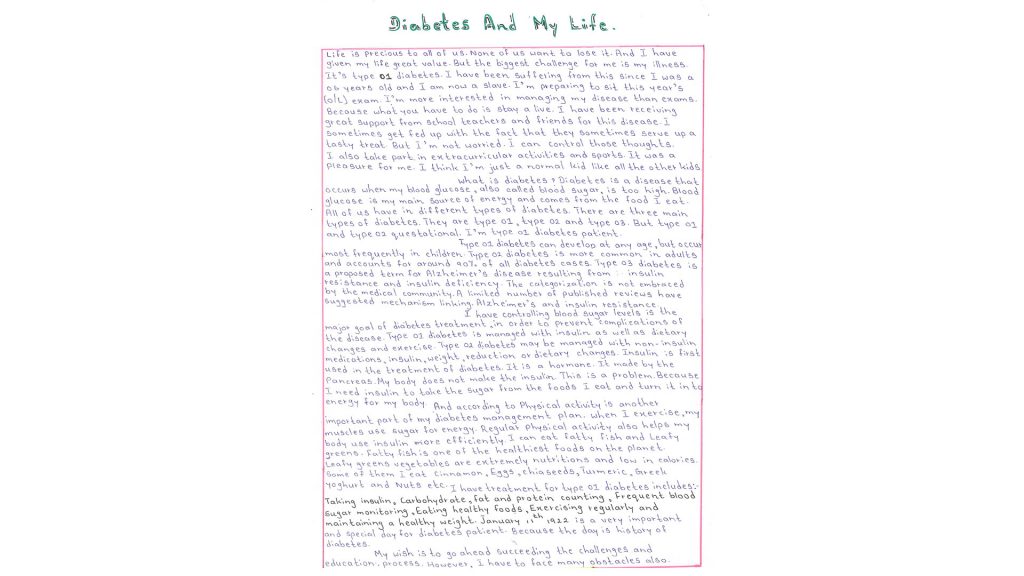 Diabetes And My Life.
Life is precious to all of us. None of us want to lose it. And I have
given my life great value. But the biggest challenge for me is my illness.
It's type 01 diabetes. I have been suffering from this since I was a
06 years old and I am now a slave. I'm preparing to sit this year's
(o/L) exam. I'm more interested in managing my disease than exams.
Because what you have to do is stay a live. I have been receiving
great support from school teachers and friends for this disease. I
sometimes get fed up with the fact that they sometimes serve up a
tasty treat. But I'm not worried. I can control those thoughts.
I also take part in extracurricular activities and sports. It was a
pleasure for me. I think I'm just a normal kid like all the other kids
What is diabetes? Diabetes is a disease that
occurs when my blood glucose, also called blood sugar, is too high. Blood
glucose is my main source of energy and comes from the food I eat.
All of us have in different types of diabetes. There are three main
types of diabetes. They are type 01, type 02 and type 03. But type 01
and type 02 questational. I'm type 01 diabetes patient.
Type 01 diabetes can develop at any age, but occur
most frequently in children. Type 02 diabetes is more common in adults
and accounts for around 90% of all diabetes cases. Type 03 diabetes is
a proposed term for Alzheimer's disease resulting from : insulin
resistance and insulin deficiency. The categorization is not embraced
by the medical community. A limited number of published reviews have
suggested mechanism linking. Alzheimer's and insulin resistance.
I have controlling blood sugar levels is the
major goal of diabetes treatment, in order to prevent complications of
the disease. Type 01 diabetes is managed with insulin as well as dietary
changes and exercise. Type 02 diabetes may be managed with non-insulin
medications, insulin, weight, reduction or dietary changes. Insulin is first
used in the treatment of diabetes. It is a hormone. It made by the
Pancreas. My body does not make the insulin. This is a problem. Because
I need insulin to take the sugar from the foods I eat and turn it in to
energy for my body. And according to Physical activity is another
important part of my diabetes management plan. When I exercise, my
muscles use sugar for energy. Regular Physical activity also helps my
body use insulin more efficiently. I can eat fatty fish and Leafy
greens. Fatty fish is one of the healthiest foods on the planet.
Leafy greens vegetables are extremely nutritions and low in calories.
Some of them I eat Cinnamon, Eggs, chiaseeds, Turmeric, Greek
Yoghurt and Nuts etc. I have treatment for type 01 diabetes includes:-
Taking insulin, Carbohydrate, fat and protein counting, Frequent blood
sugar monitoring, Eating healthy foods, Exercising regularly and
maintaining a healthy weight. January 11th 1922 is a very important
and special day for diabetes patient. Because the day is history of
diabetes.
My wish is to go ahead succeeding the challenges and
education process. However, I have to face many obstacles also.